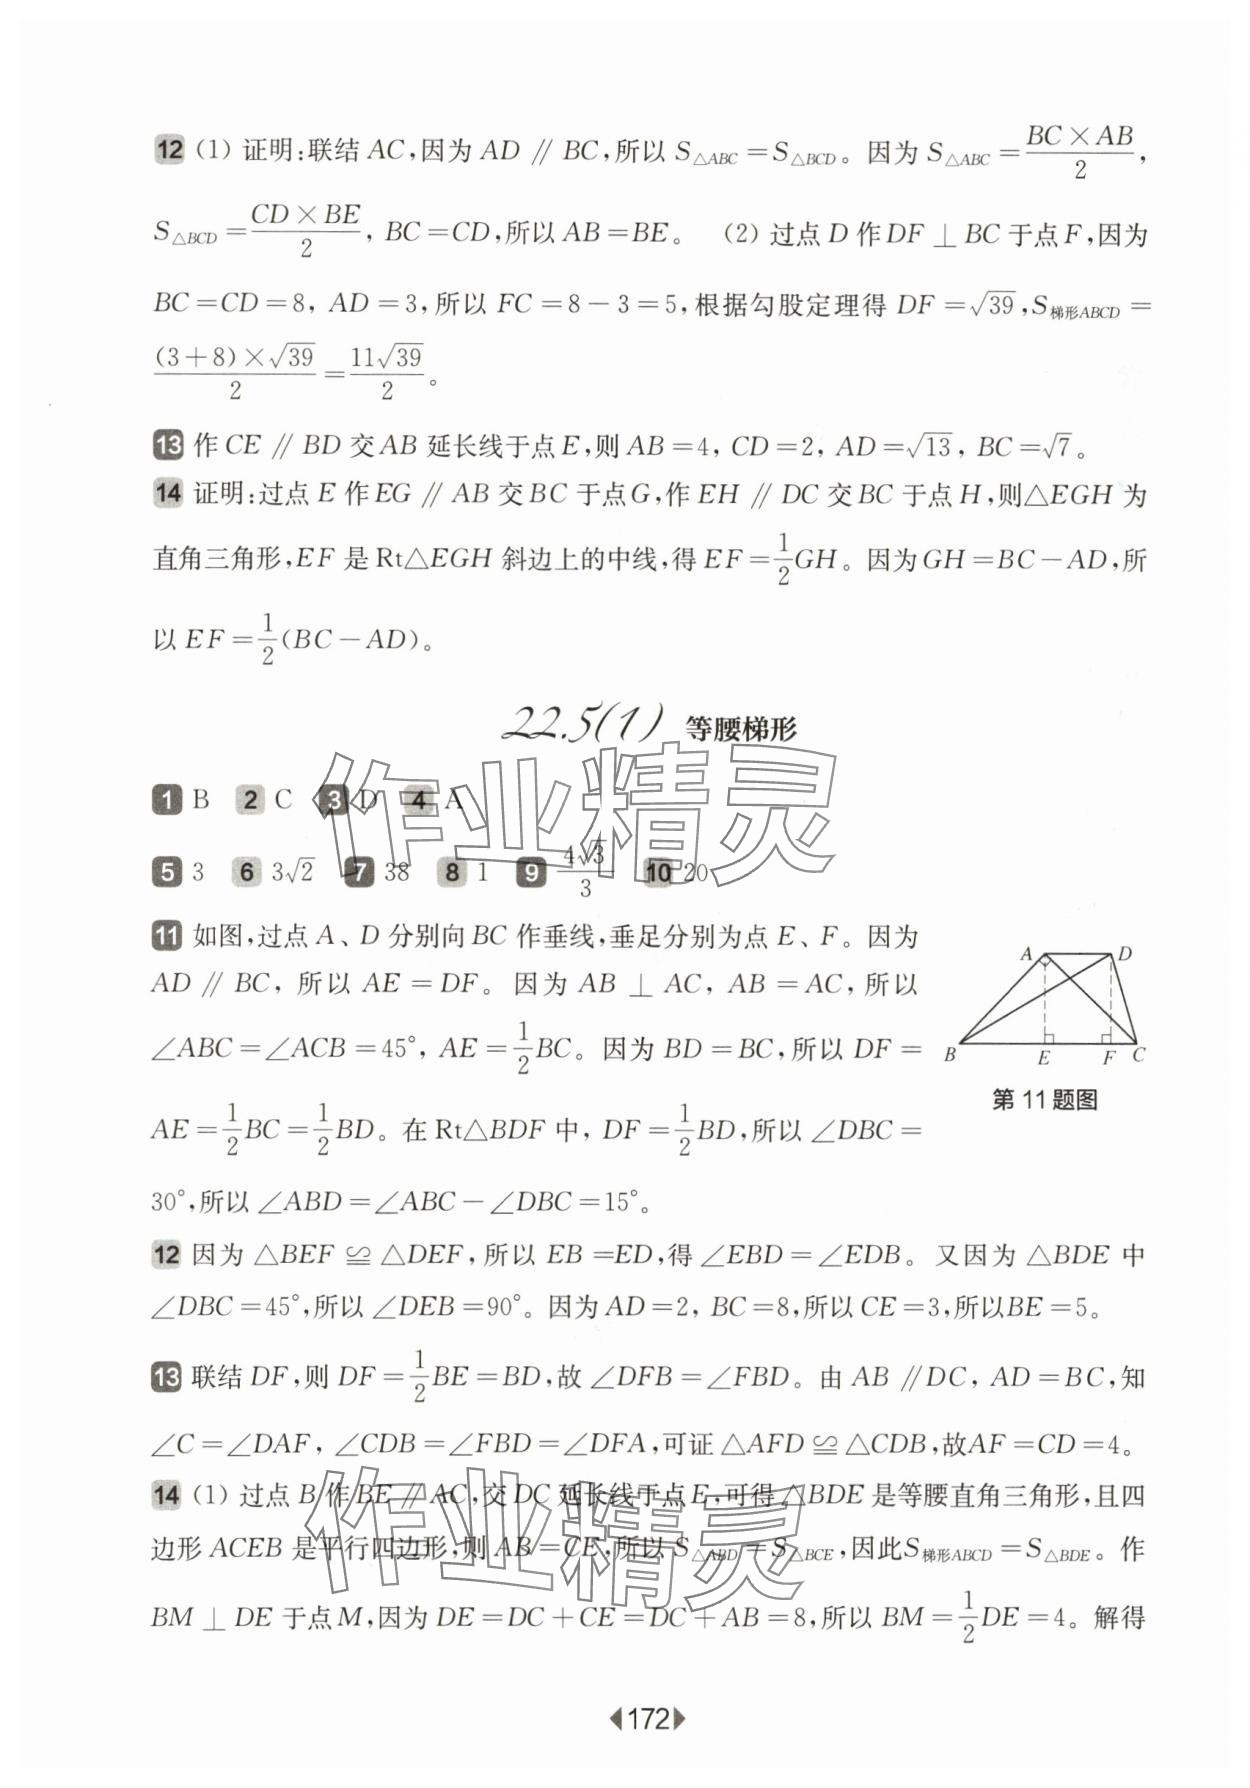 12 (1) 证明:联结 AC,因为 AD ∥ BC,所以 S△ABC = S△BCD。因为 S△ABC = BC×AB/2,
S△BCD = CD×BE/2, BC=CD,所以 AB=BE。 (2) 过点 D 作 DF ⊥ BC 于点 F,因为
BC=CD=8, AD=3,所以 FC=8-3=5,根据勾股定理得 DF=√39,S梯形ABCD =
(3+8)×√39/2 = 11√39/2。
13 作 CE ∥ BD 交 AB 延长线于点 E,则 AB=4, CD=2, AD=√13, BC=√7。
14 证明:过点 E 作 EG ∥ AB 交 BC 于点 G,作 EH ∥ DC 交 BC 于点 H,则△EGH 为
直角三角形,EF 是 Rt△EGH 斜边上的中线,得 EF=1/2GH。因为 GH=BC-AD,所
以 EF=1/2(BC-AD)。
22.5(1) 等腰梯形
1 B 2 C 3 D 4 A
5 3 6 3√2 7 38 8 1 9 4√3/3 10 20
11 如图,过点 A、D 分别向 BC 作垂线,垂足分别为点 E、F。因为
AD ∥ BC, 所以 AE=DF。因为 AB ⊥ AC, AB=AC,所以
∠ABC=∠ACB=45°, AE=1/2BC。因为 BD=BC,所以 DF=
AE=1/2BC=1/2BD。在 Rt△BDF 中, DF=1/2BD,所以 ∠DBC=
30°,所以 ∠ABD=∠ABC-∠DBC=15°。
A D
B E F C
第 11 题图
12 因为 △BEF ≌ △DEF,所以 EB=ED,得 ∠EBD=∠EDB。又因为 △BDE 中
∠DBC=45°,所以 ∠DEB=90°。因为 AD=2, BC=8,所以 CE=3,所以BE=5。
13 联结 DF,则 DF=1/2BE=BD,故 ∠DFB=∠FBD。由 AB ∥ DC, AD=BC,知
∠C=∠DAF, ∠CDB=∠FBD=∠DFA,可证 △AFD ≌ △CDB,故AF=CD=4。
14 (1) 过点 B 作 BE ∥ AC,交 DC 延长线于点 E,可得 △BDE 是等腰直角三角形,且四
边形 ACEB 是平行四边形,则 AB=CE,所以 S△ABD=S△BCE,因此S梯形ABCD=S△BDE。作
BM ⊥ DE 于点 M,因为 DE=DC+CE=DC+AB=8,所以 BM=1/2DE=4。解得
作业精灵
作业精灵
172